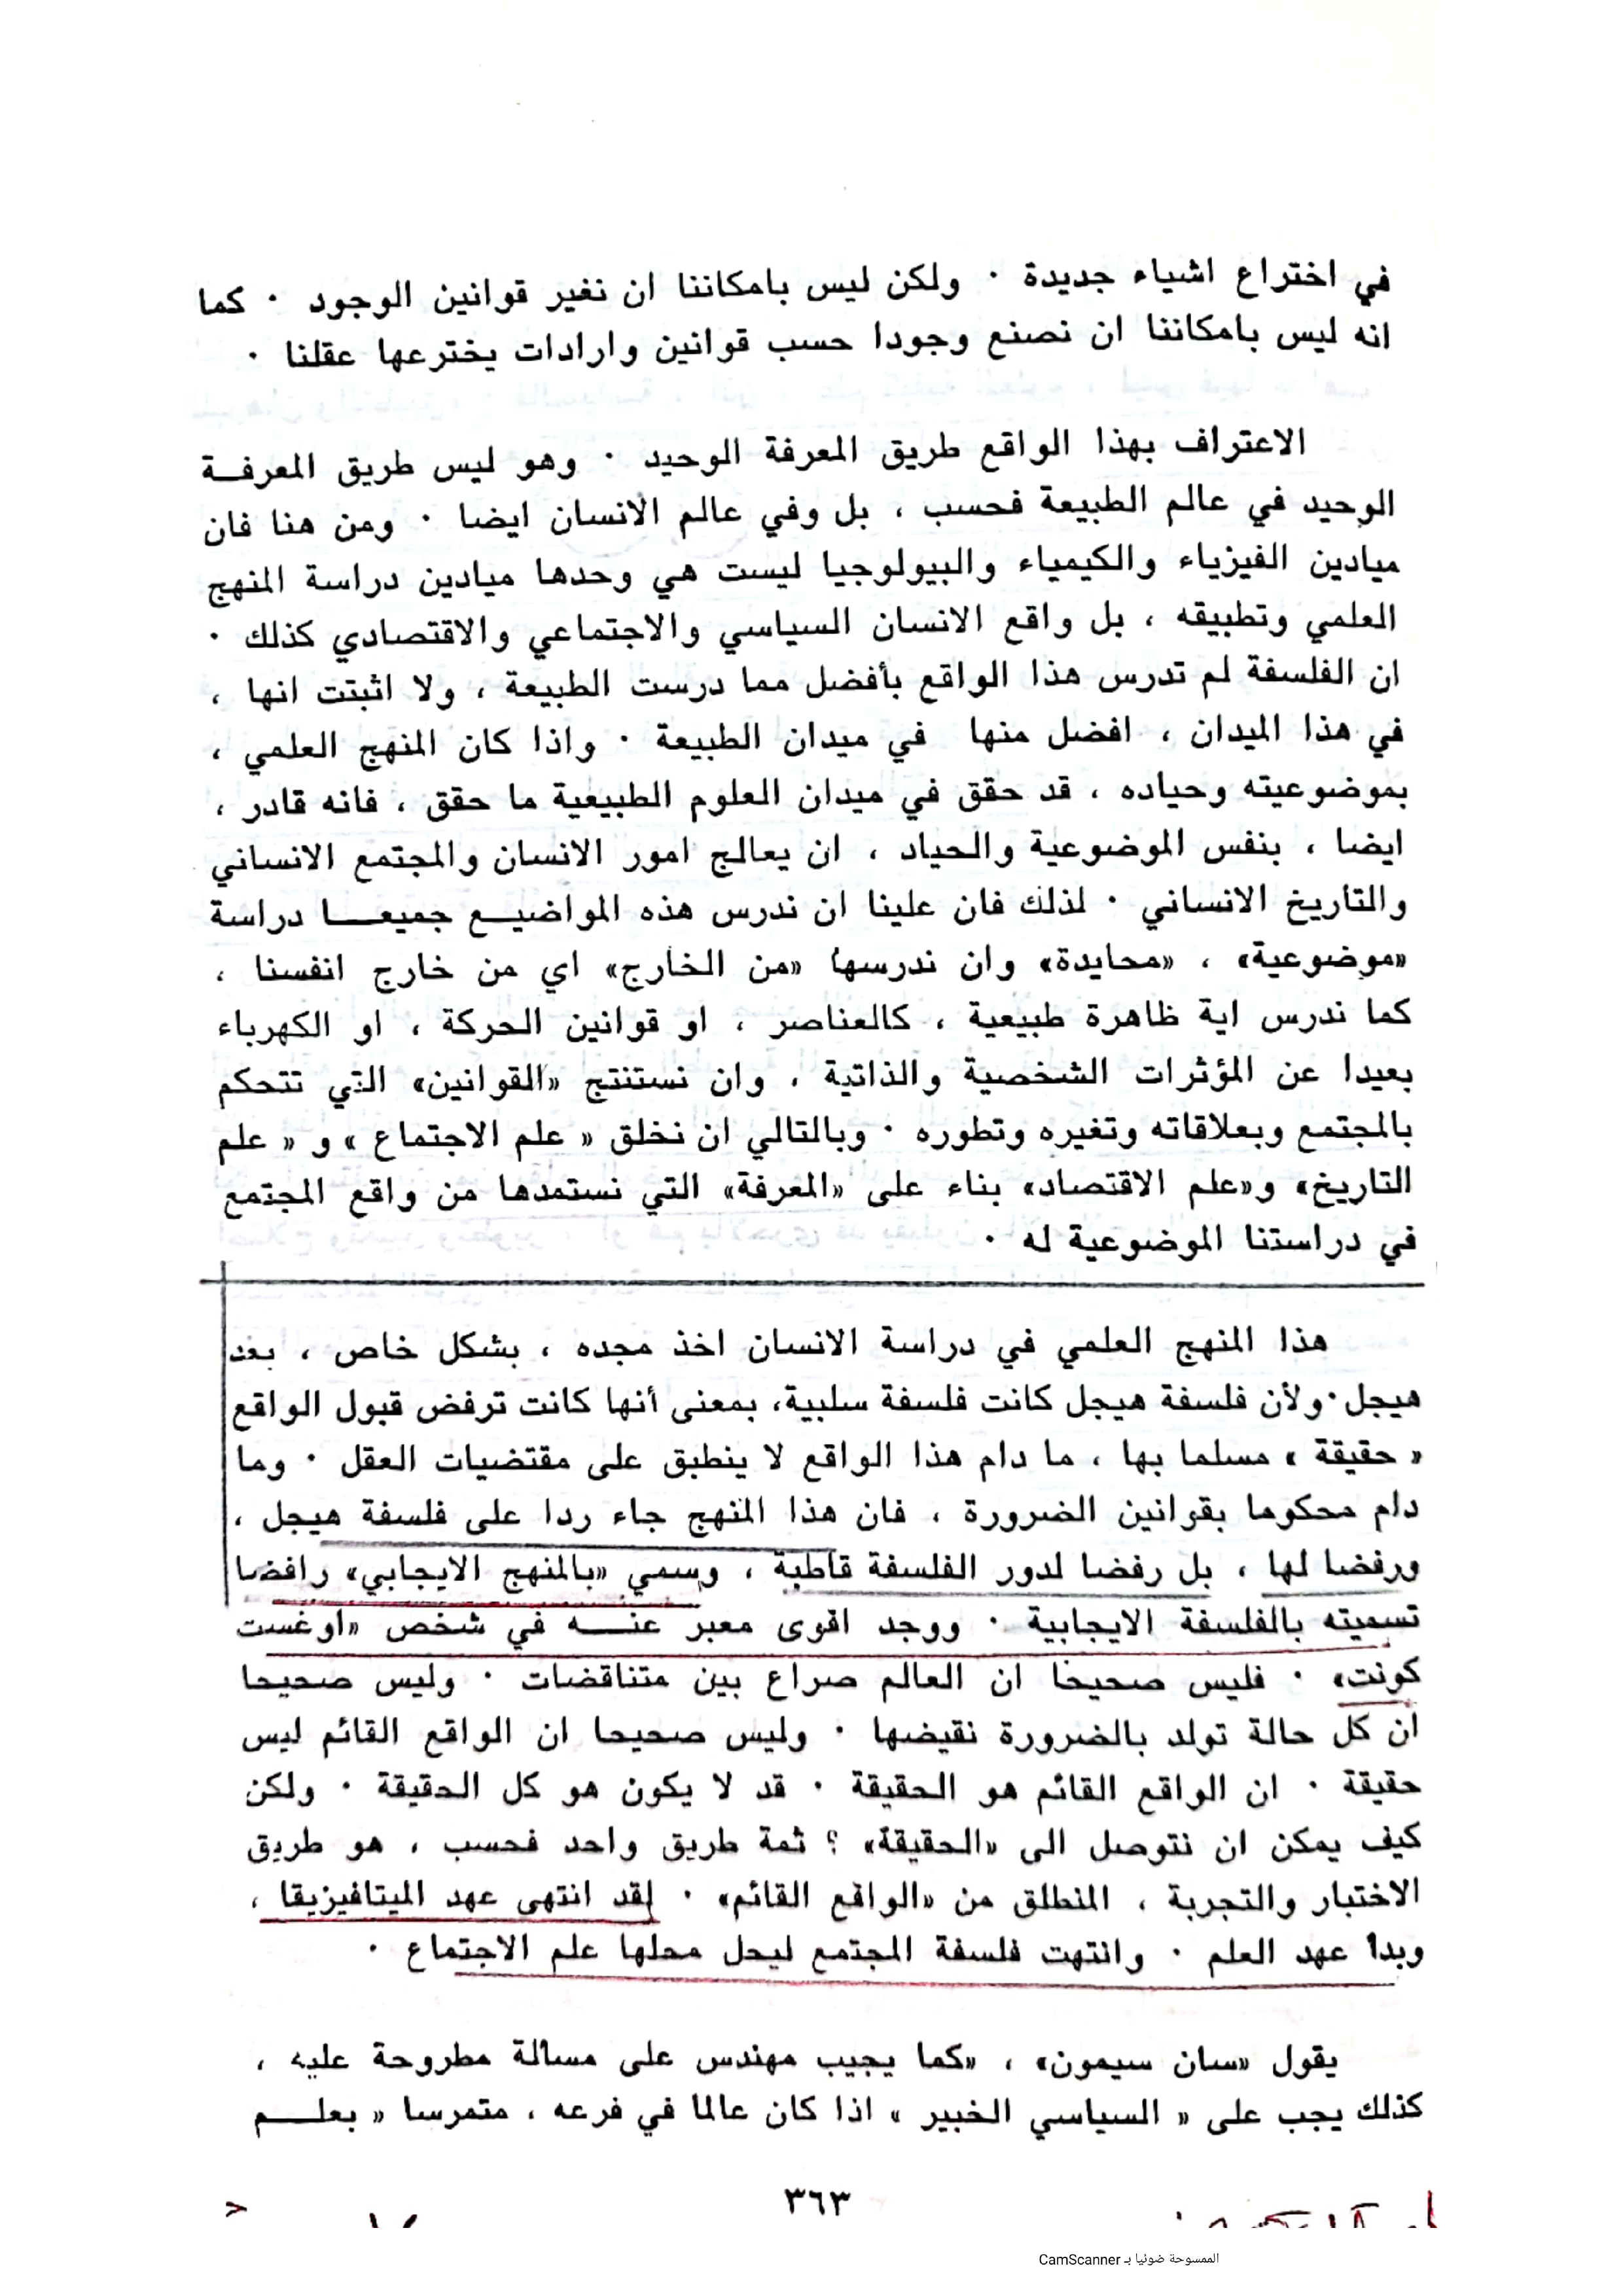 في اختراع اشياء جديدة · ولكن ليس بامكاننا ان نغير قوانين الوجود · كما
انه ليس بامكاننا ان نصنع وجودا حسب قوانين وارادات يخترعها عقلنا ·
الاعتراف بهذا الواقع طريق المعرفة الوحيد · وهو ليس طريق المعرفــة
الوحيد في عالم الطبيعة فحسب ، بل وفي عالم الانسان ايضا · ومن هنا فان
ميادين الفيزياء والكيمياء والبيولوجيا ليست هي وحدها ميادين دراسة المنهج
العلمي وتطبيقه ، بل واقع الانسان السياسي والاجتماعي والاقتصادي كذلك ·
ان الفلسفة لم تدرس هذا الواقع بأفضل مما درست الطبيعة ، ولا اثبتت انها ،
في هذا الميدان ، افضل منها في ميدان الطبيعة · واذا كان المنهج العلمي ،
بموضوعيته وحياده ، قد حقق في ميدان العلوم الطبيعية ما حقق ، فانه قادر ،
ايضا ، بنفس الموضوعية والحياد ، ان يعالج امور الانسان والمجتمع الانساني
والتاريخ الانساني · لذلك فان علينا ان ندرس هذه المواضيــع جميعــا دراسة
«موضوعية» ، «محايدة» وان ندرسها «من الخارج» اي من خارج انفسنا ،
كما ندرس اية ظاهرة طبيعية ، كالعناصر ، او قوانين الحركة ، او الكهرباء
بعيدا عن المؤثرات الشخصية والذاتية ، وان نستنتج «القوانين» التي تتحكم
بالمجتمع وبعلاقاته وتغيره وتطوره · وبالتالي ان نخلق « علم الاجتماع » و « علم
التاريخ» و«علم الاقتصاد» بناء على «المعرفة» التي نستمدها من واقع المجتمع
في دراستنا الموضوعية له ·
هذا المنهج العلمي في دراسة الانسان اخذ مجده ، بشكل خاص ، بعد
هيجل · ولأن فلسفة هيجل كانت فلسفة سلبية، بمعنى أنها كانت ترفض قبول الواقع
« حقيقة » مسلما بها ، ما دام هذا الواقع لا ينطبق على مقتضيات العقل · وما
دام محكوما بقوانين الضرورة ، فان هذا المنهج جاء ردا على فلسفة هيجل ،
ورفضا لها ، بل رفضا لدور الفلسفة قاطبة ، وسمي «بالمنهج الايجابي» رافضا
تسميته بالفلسفة الايجابية · ووجد اقوى معبر عنــه في شخص «اوغست
كونت» · فليس صحيحا ان العالم صراع بين متناقضات · وليس صحيحا
ان كل حالة تولد بالضرورة نقيضها · وليس صحيحا ان الواقع القائم ليس
حقيقة · ان الواقع القائم هو الحقيقة · قد لا يكون هو كل الحقيقة · ولكن
كيف يمكن ان نتوصل الى «الحقيقة» ؟ ثمة طريق واحد فحسب ، هو طريق
الاختبار والتجربة ، المنطلق من «الواقع القائم» · لقد انتهى عهد الميتافيزيقا ،
وبدا عهد العلم · وانتهت فلسفة المجتمع ليحل محلها علم الاجتماع ·
يقول «سان سيمون» ، «كما يجيب مهندس على مسألة مطروحة عليه ،
كذلك يجب على « السياسي الخبير » اذا كان عالما في فرعه ، متمرسا « بعلــم
٣٦٣
الممسوحة ضوئيا بـ CamScanner